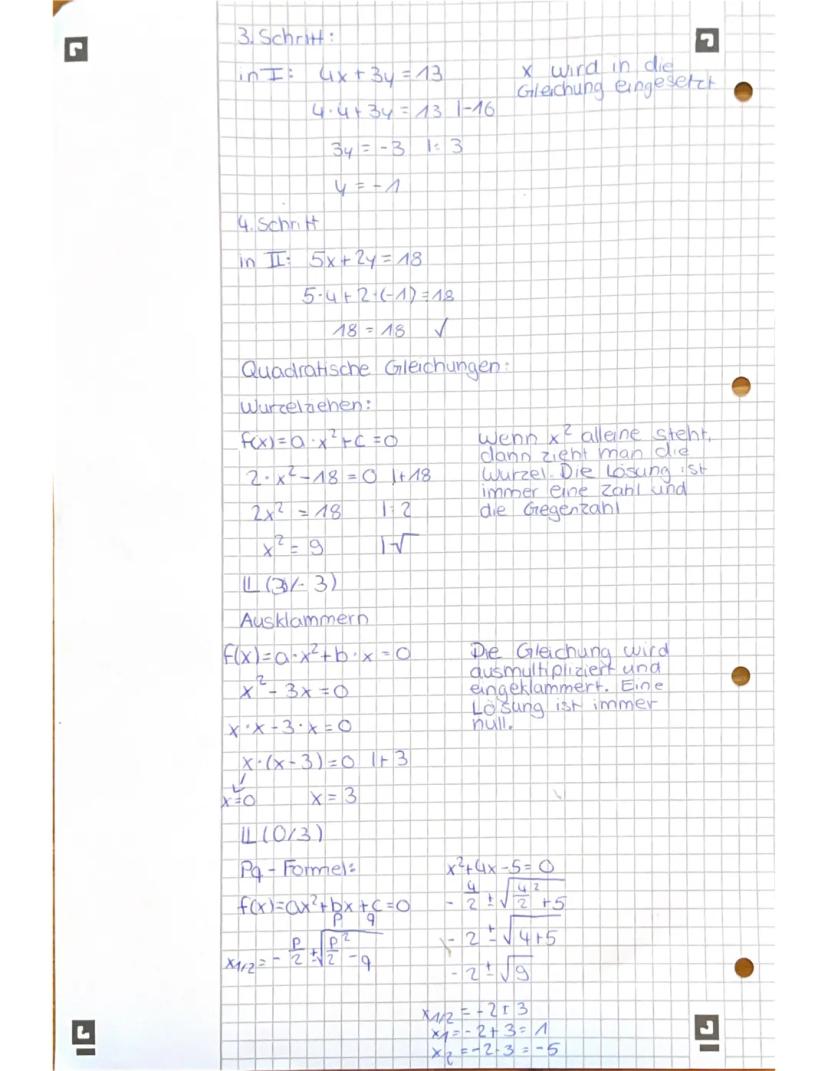 3. Schritt:
in I: 4x + 3y = 13
x wird in die
Gleichung eingesetzt
4·4 + 3y = 13 |-16
3y = -3 |: 3
y = -1
4. Schritt
in II: 5x + 2y = 18
5·4 + 2·(-1) = 18
18 = 18 ✓
Quadratische Gleichungen:
Wurzelziehen:
f(x) = a·x² + c = 0
2·x² - 18 = 0 |+18
2x² = 18 |: 2
x² = 9 |√
𝕃 (3/-3)
Wenn x² alleine steht,
dann zieht man die
Wurzel. Die Lösung ist
immer eine Zahl und
die Gegenzahl
Ausklammern
f(x) = a·x² + b·x = 0
x² - 3x = 0
x·x - 3·x = 0
x·(x - 3) = 0 |+3
x = 0 x = 3
𝕃 (0/3)
Die Gleichung wird
ausmultipliziert und
eingeklammert. Eine
Lösung ist immer
null.
Pq - Formel:
f(x) = ax² + bx + c = 0
p q
x1/2 = - p/2 ± √(p/2² - q)
x² + 4x - 5 = 0
- 4/2 ± √(4/2² + 5)
- 2 ± √(4 + 5)
- 2 ± √9
x1/2 = -2 ± 3
x1 = -2 + 3 = 1
x2 = -2 - 3 = -5